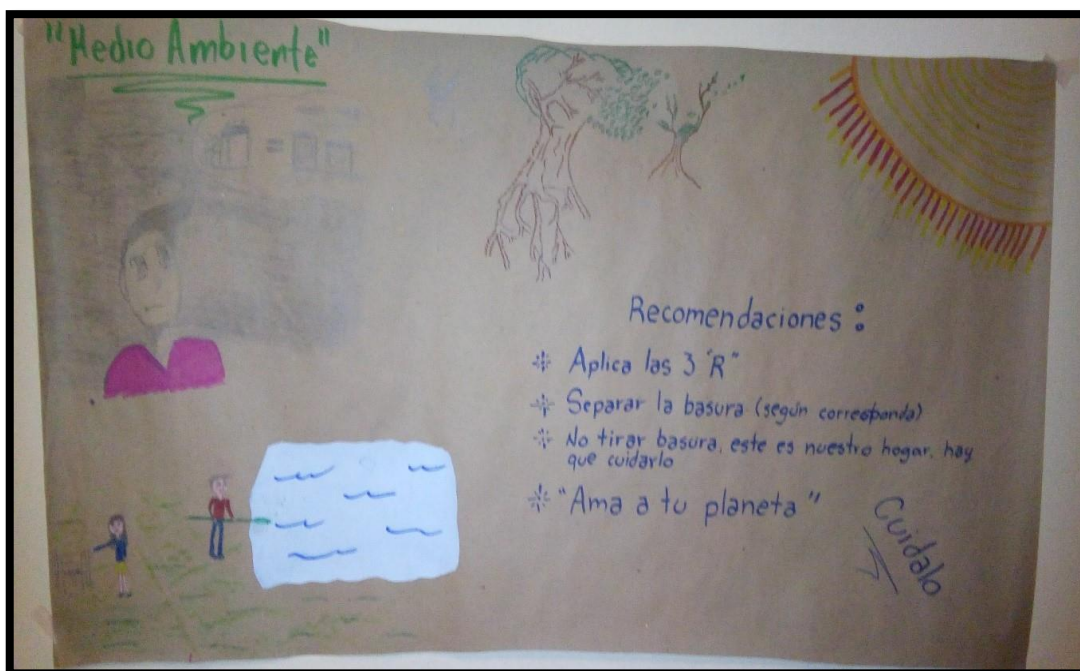 "Medio Ambiente"
Recomendaciones :
Aplica las 3 "R"
Separar la basura (según corresponda)
No tirar basura, este es nuestro hogar, hay
que cuidarlo
"Ama a tu planeta"
Cuidalo